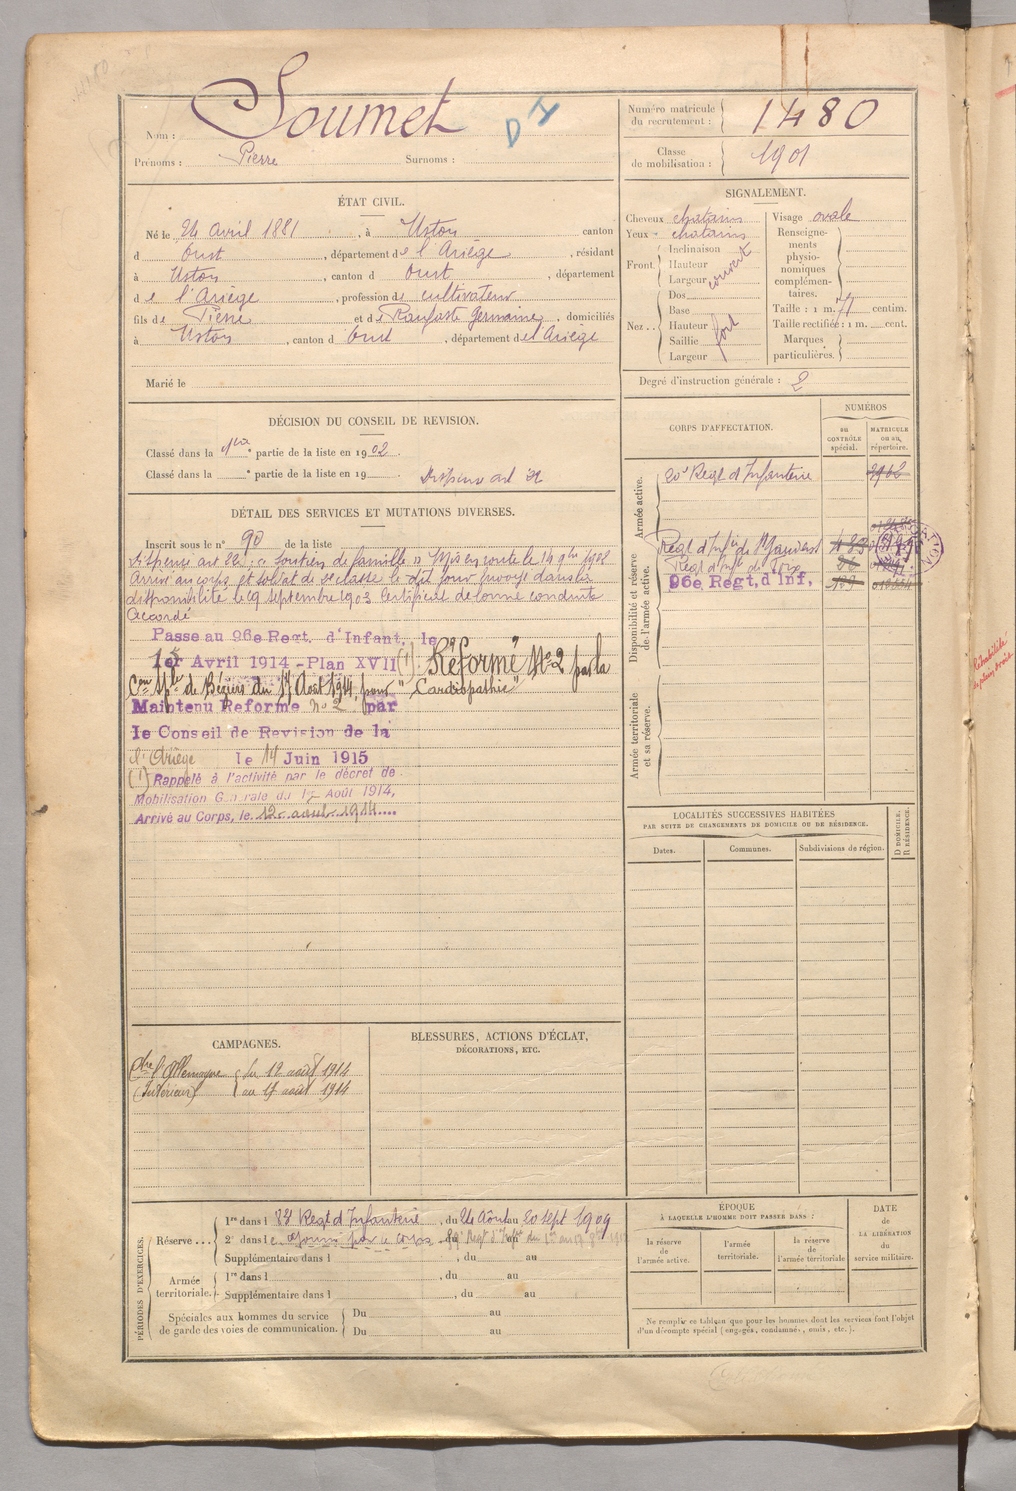 Nom : Soumet
D
Prénoms : Pierre Surnoms :
Numéro matricule du recrutement : 1480
Classe de mobilisation : 1901
ÉTAT CIVIL.
Né le 24 avril 1881, à Ustou canton
d Oust, département de l'Ariège, résidant
à Ustou, canton d Oust, département
de l'Ariège, profession de cultivateur
fils de Pierre et de Germaine, domiciliés
à Ustou, canton d Oust, département de l'Ariège
Marié le
SIGNALEMENT.
Cheveux chatains
Yeux chatains
Front. Inclinaison
Hauteur
Largeur
couvert
Nez.. Dos
Base
Hauteur
Saillie
Largeur
fort
Visage ovale
Renseignements physionomiques complémentaires.
Taille : 1 m. 71 centim.
Taille rectifiée : 1 m. cent.
Marques particulières.
Degré d'instruction générale : 2
DÉCISION DU CONSEIL DE REVISION.
Classé dans la 1ère partie de la liste en 1902.
Classé dans la e partie de la liste en 19
Dispensé art 22
DÉTAIL DES SERVICES ET MUTATIONS DIVERSES.
Inscrit sous le n° 90 de la liste
Dispensé art 22 : « Soutien de famille » Mis en route le 14 9bre 1902
Arrivé au corps et soldat de 2e classe le dit jour Envoyé dans la
disponibilité le 19 septembre 1903 Certificat de bonne conduite
Accordé
Passe au 96e Regt. d'Infant. le
1er Avril 1914 - Plan XVII (1). Réformé No 2 par la
Con Sple de Béziers du 17 Août 1914, pour "Cardiopathie"
Maintenu Reforme no 2 par
le Conseil de Revision de la
l'Ariège le 14 Juin 1915
(1) Rappelé à l'activité par le décret de
Mobilisation Générale du 1er Août 1914,
Arrivé au Corps, le 12 août 1914
CORPS D'AFFECTATION.
NUMÉROS
au CONTRÔLE spécial.
MATRICULE ou au répertoire.
Armée active.
20e Regt d'Infanterie 2962
Disponibilité et réserve de l'armée active.
Regt d'Infie de St Gaudens
Regt d'Inf. de Foix
96e Regt, d'Inf,
Armée territoriale et sa réserve.
LOCALITÉS SUCCESSIVES HABITÉES
PAR SUITE DE CHANGEMENTS DE DOMICILE OU DE RÉSIDENCE.
Dates. Communes. Subdivisions de région. D DOMICILE. R RÉSIDENCE.
CAMPAGNES.
Ctre l'Allemagne du 12 août 1914
(Intérieur) au 17 août 1914
BLESSURES, ACTIONS D'ÉCLAT,
DÉCORATIONS, ETC.
PÉRIODES D'EXERCICES.
Réserve... 1re dans l 83e Regt d'Infanterie, du 24 Août au 20 sept 1909
2e dans l
Supplémentaire dans l , du au
Armée territoriale. 1re dans l , du au
Supplémentaire dans l , du au
Spéciales aux hommes du service de garde des voies de communication. Du au
Du au
ÉPOQUE
À LAQUELLE L'HOMME DOIT PASSER DANS :
la réserve de l'armée active.
l'armée territoriale.
la réserve de l'armée territoriale
DATE de LA LIBÉRATION du service militaire.
Ne remplir ce tableau que pour les hommes dont les services font l'objet
d'un décompte spécial (engagés, condamnés, omis, etc.).